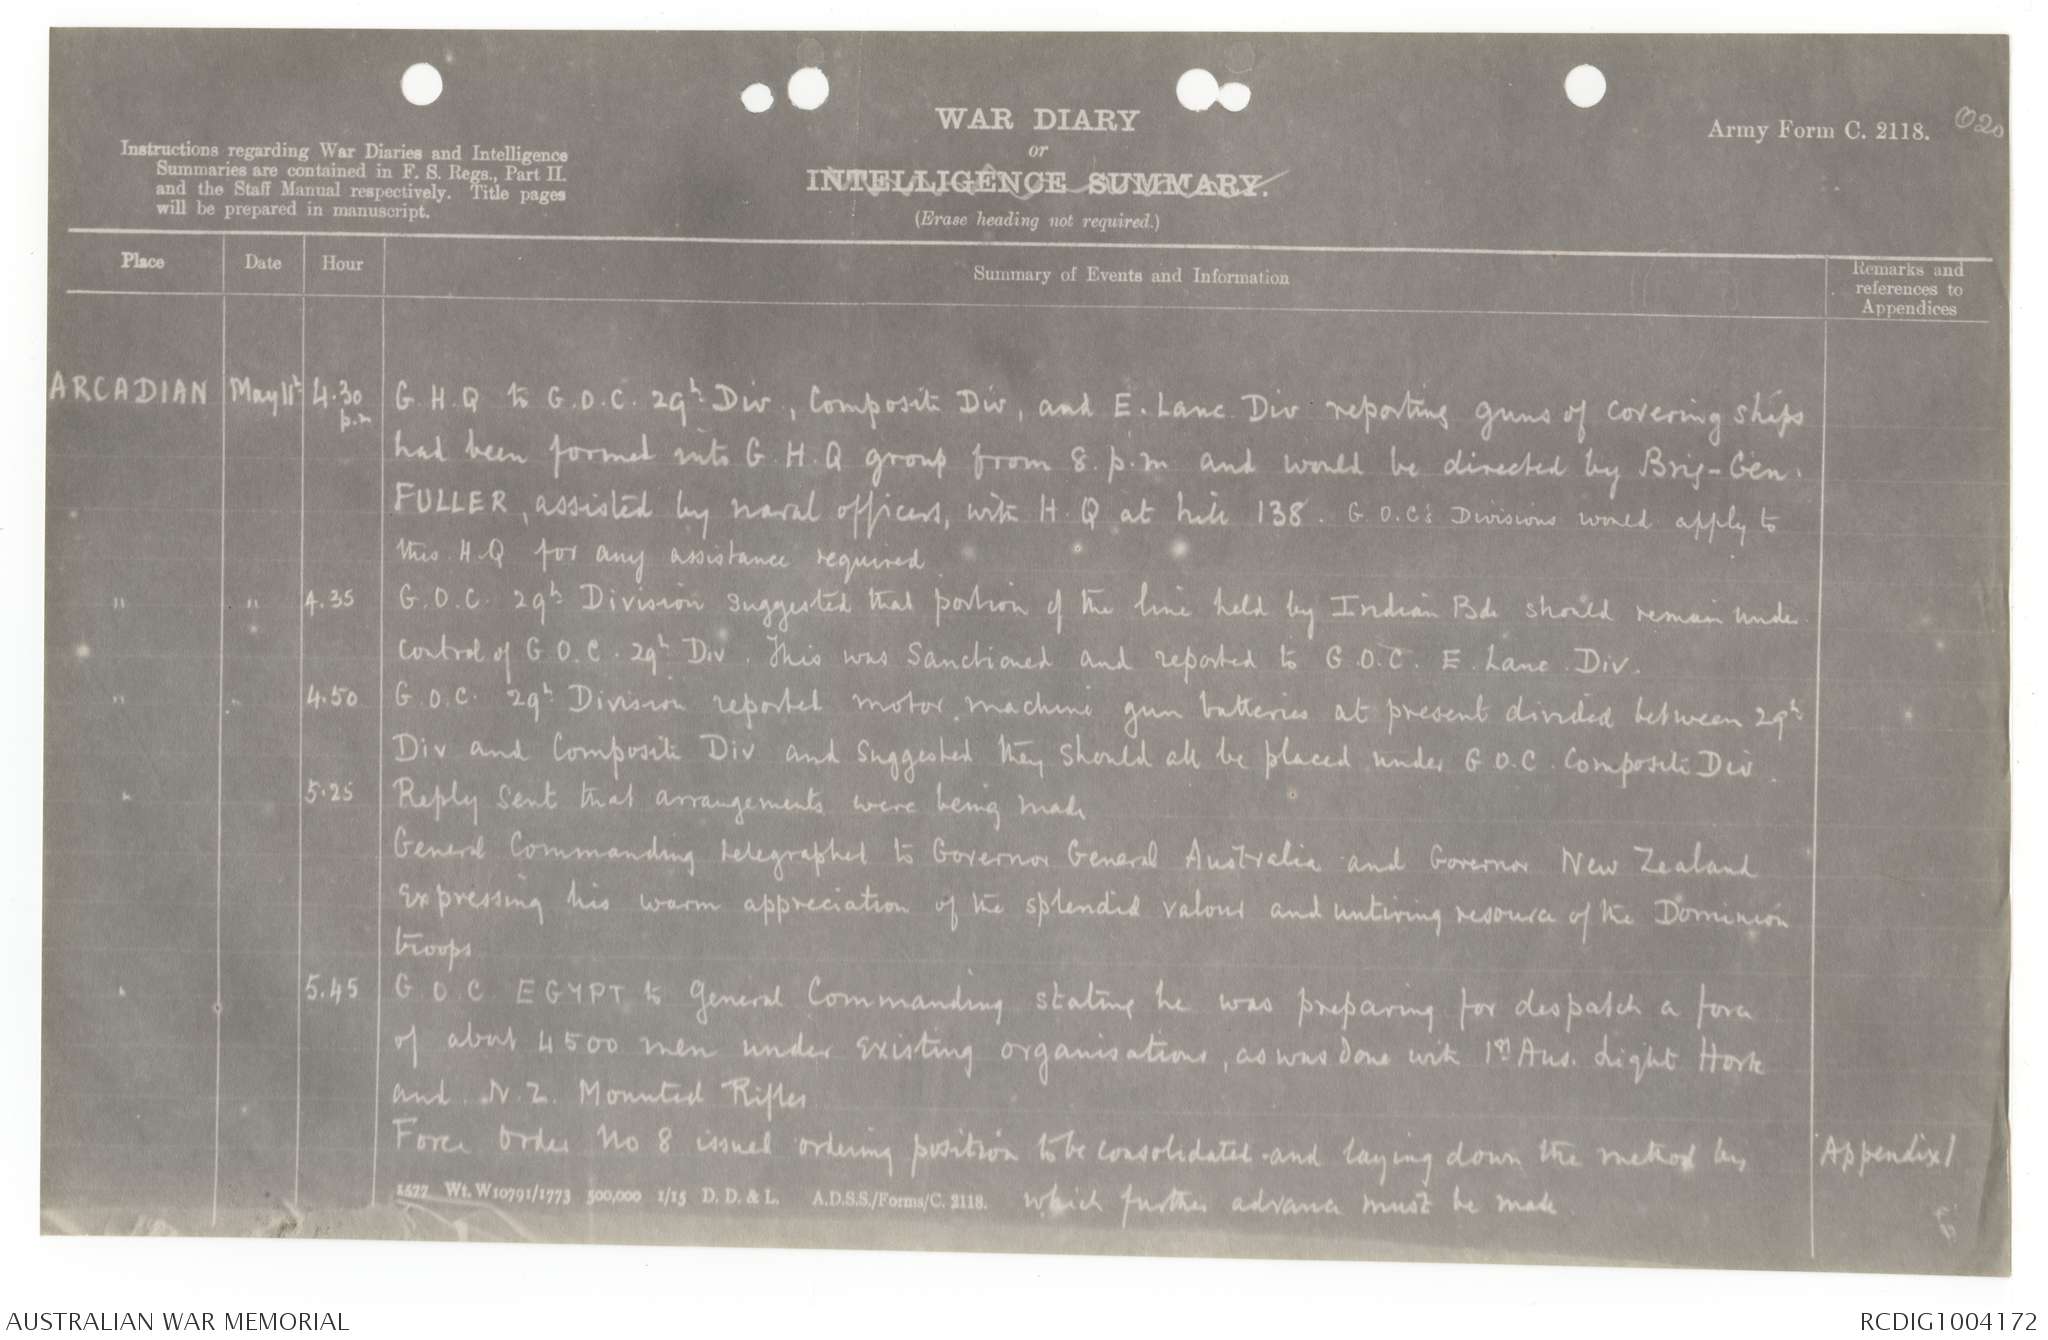 WAR DIARY
or
INTELLIGENCE SUMMARY.
(Erase heading not required.)
Army Form C. 2118.
020
Instructions regarding War Diaries and Intelligence
Summaries are contained in F. S. Regs., Part II.
and the Staff Manual respectively. Title pages
will be prepared in manuscript.
Place Date Hour Summary of Events and Information Remarks and
references to
Appendices
ARCADIAN May 11th 4.30 p.m G.H.Q to G.O.C. 29th Div, Composite Div, and E. Lanc Div reporting guns of covering ships
had been formed into G.H.Q group from 8.p.m and would be directed by Brig-Gen.
FULLER, assisted by naval officers, with H.Q at hill 138. G.O.C's Divisions would apply to
this H.Q for any assistance required
" " 4.35 G.O.C. 29th Division suggested that portion of the line held by Indian Bde should remain under
control of G.O.C. 29th Div. This was sanctioned and reported to G.O.C. E. Lanc. Div.
" " 4.50 G.O.C. 29th Division reported motor machine gun batteries at present divided between 29th
Div and Composite Div and suggested they should all be placed under G.O.C. Composite Div.
" 5.25 Reply sent that arrangements were being made
General Commanding telegraphed to Governor General Australia and Governor New Zealand
expressing his warm appreciation of the splendid valour and untiring resource of the Dominion
troops
" 5.45 G.O.C EGYPT to General Commanding stating he was preparing for despatch a force
of about 4500 men under existing organisations, as was done with 1st Aus. Light Horse
and N.Z. Mounted Rifles
Force Order No 8 issued ordering position to be consolidated and laying down the method by Appendix 1
which further advance must be made.
1577 Wt. W10791/1773 500,000 1/15 D. D. & L. A.D.S.S./Forms/C. 2118.
AUSTRALIAN WAR MEMORIAL
RCDIG1004172